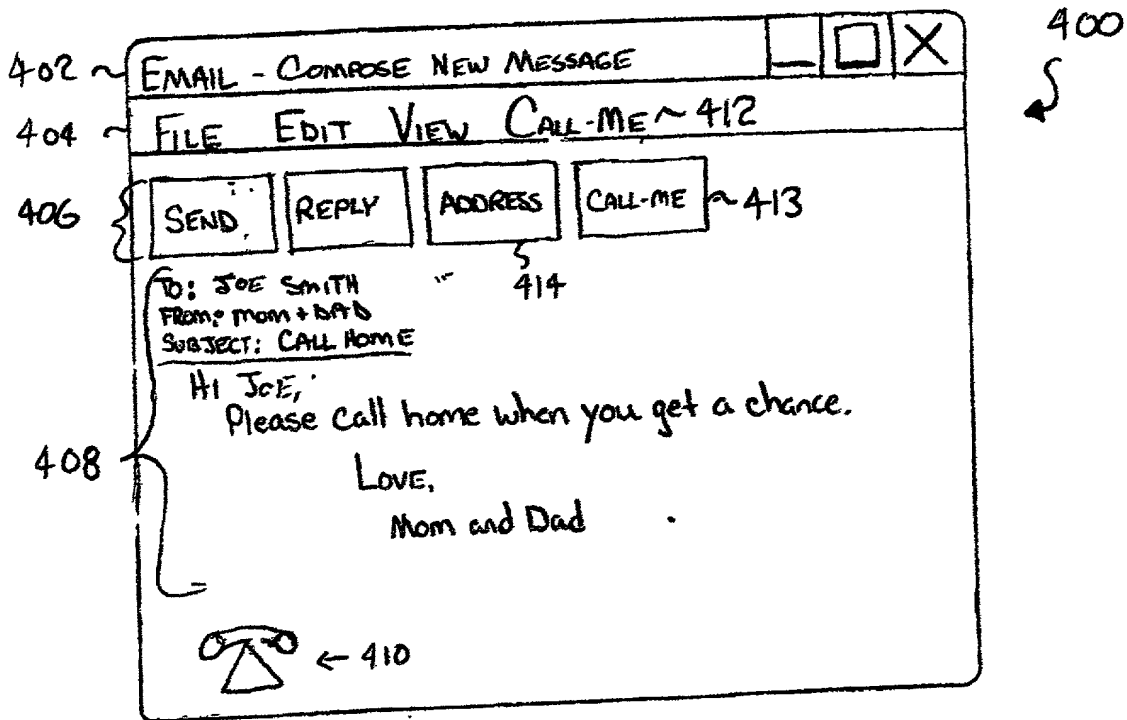 400
402 EMAIL - COMPOSE NEW MESSAGE
404 FILE EDIT VIEW CALL-ME 412
406 SEND REPLY ADDRESS CALL-ME 413
414
TO: JOE SMITH
FROM: MOM + DAD
SUBJECT: CALL HOME
HI JOE,
Please call home when you get a chance.
408
LOVE,
Mom and Dad
410